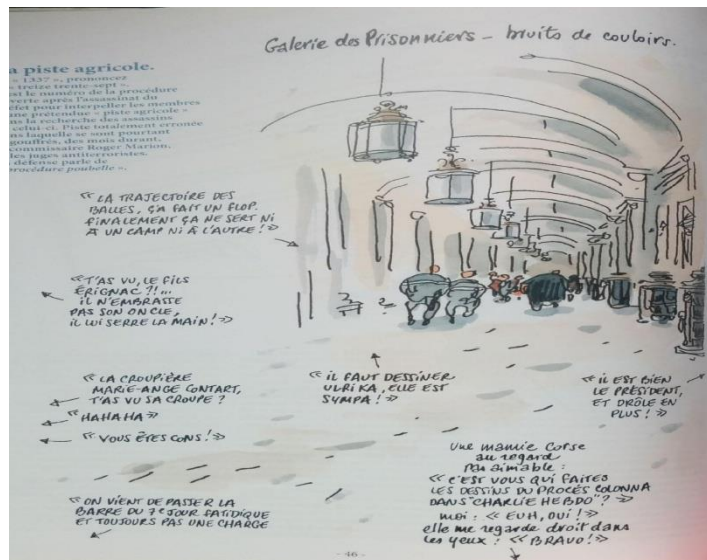 Galerie des Prisonniers – bruits de couloirs.
a piste agricole.
« 1337 », prononcez
« treize trente-sept »,
est le numéro de la procédure
verte après l'assassinat du
éfet pour interpeller les membres
une prétendue « piste agricole »
ns la recherche des assassins
celui-ci. Piste totalement erronée
ns laquelle se sont pourtant
gouffrés, des mois durant,
commissaire Roger Marion,
les juges antiterroristes.
défense parle de
procédure poubelle ».
« LA TRAJECTOIRE DES
BALLES, ÇA FAIT UN FLOP.
FINALEMENT ÇA NE SERT NI
À UN CAMP NI À L'AUTRE ! »
« T'AS VU, LE FILS
ÉRIGNAC ?!...
IL N'EMBRASSE
PAS SON ONCLE,
IL LUI SERRE LA MAIN ! »
« LA CROUPIÈRE
MARIE-ANGE CONTART,
T'AS VU SA CROUPE ?
« HAHAHA »
« VOUS ÊTES CONS ! »
« IL FAUT DESSINER
ULRIKA, ELLE EST
SYMPA ! »
« IL EST BIEN
LE PRÉSIDENT,
ET DRÔLE EN
PLUS ! »
« ON VIENT DE PASSER LA
BARRE DU 7e JOUR FATIDIQUE
ET TOUJOURS PAS UNE CHARGE
Une mamie Corse
au regard
pas aimable :
« C'EST VOUS QUI FAITES
LES DESSINS DU PROCÈS COLONNA
DANS "CHARLIE HEBDO" ? »
moi : « EUH, OUI ! »
elle me regarde droit dans
les yeux : « BRAVO ! »
- 46 -